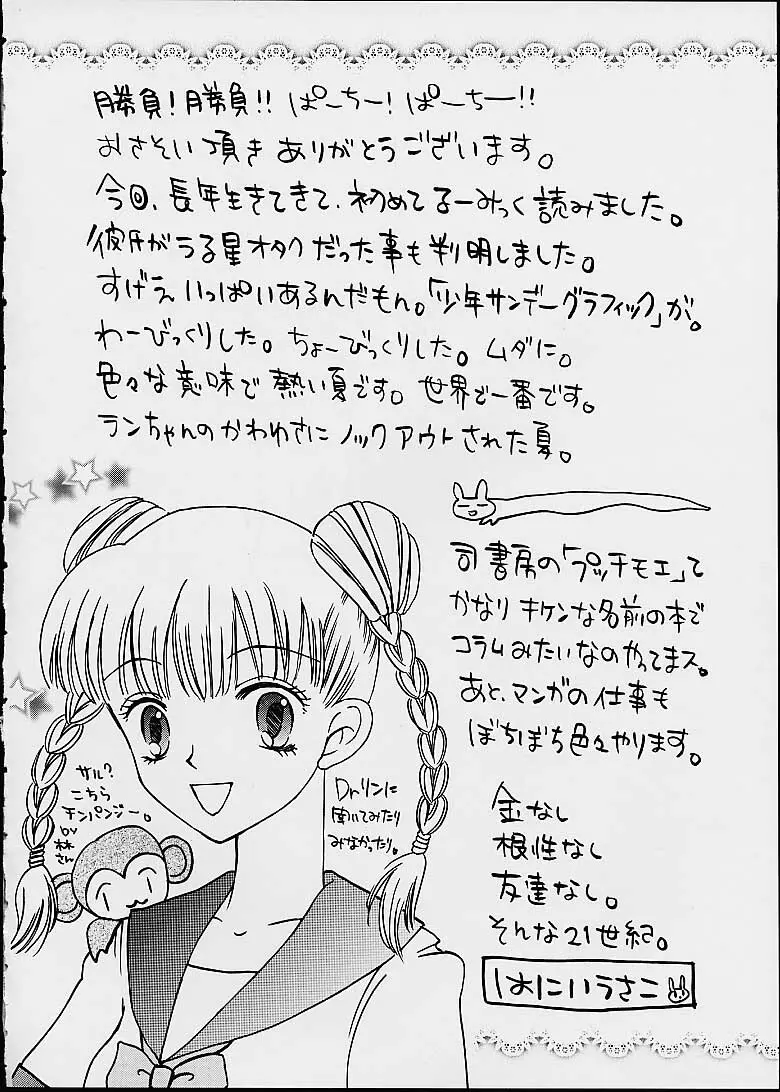 勝負！勝負!! ぱーちー！ぱーちー!!
おさそい頂きありがとうございます。
今回、長年生きてきて、初めてるーみっく読みました。
彼氏がうる星オタクだった事も判明しました。
すげえいっぱいあるんだもん。「少年サンデーグラフィック」が。
わーびっくりした。ちょーびっくりした。ムダに。
色々な意味で熱い夏です。世界で一番です。
ランちゃんのかわゆさにノックアウトされた夏。
司書房の「プッチモエ」て
かなりキケンな名前の本で
コラムみたいなのやってまス。
あと、マンガの仕事も
ぼちぼち色々やります。
サル？
こちら
チンパンジー。
by
林さん
Dr.リンに
聞いてみたり
みなかったり。
金なし
根性なし
友達なし。
そんな21世紀。
はにいうさこ